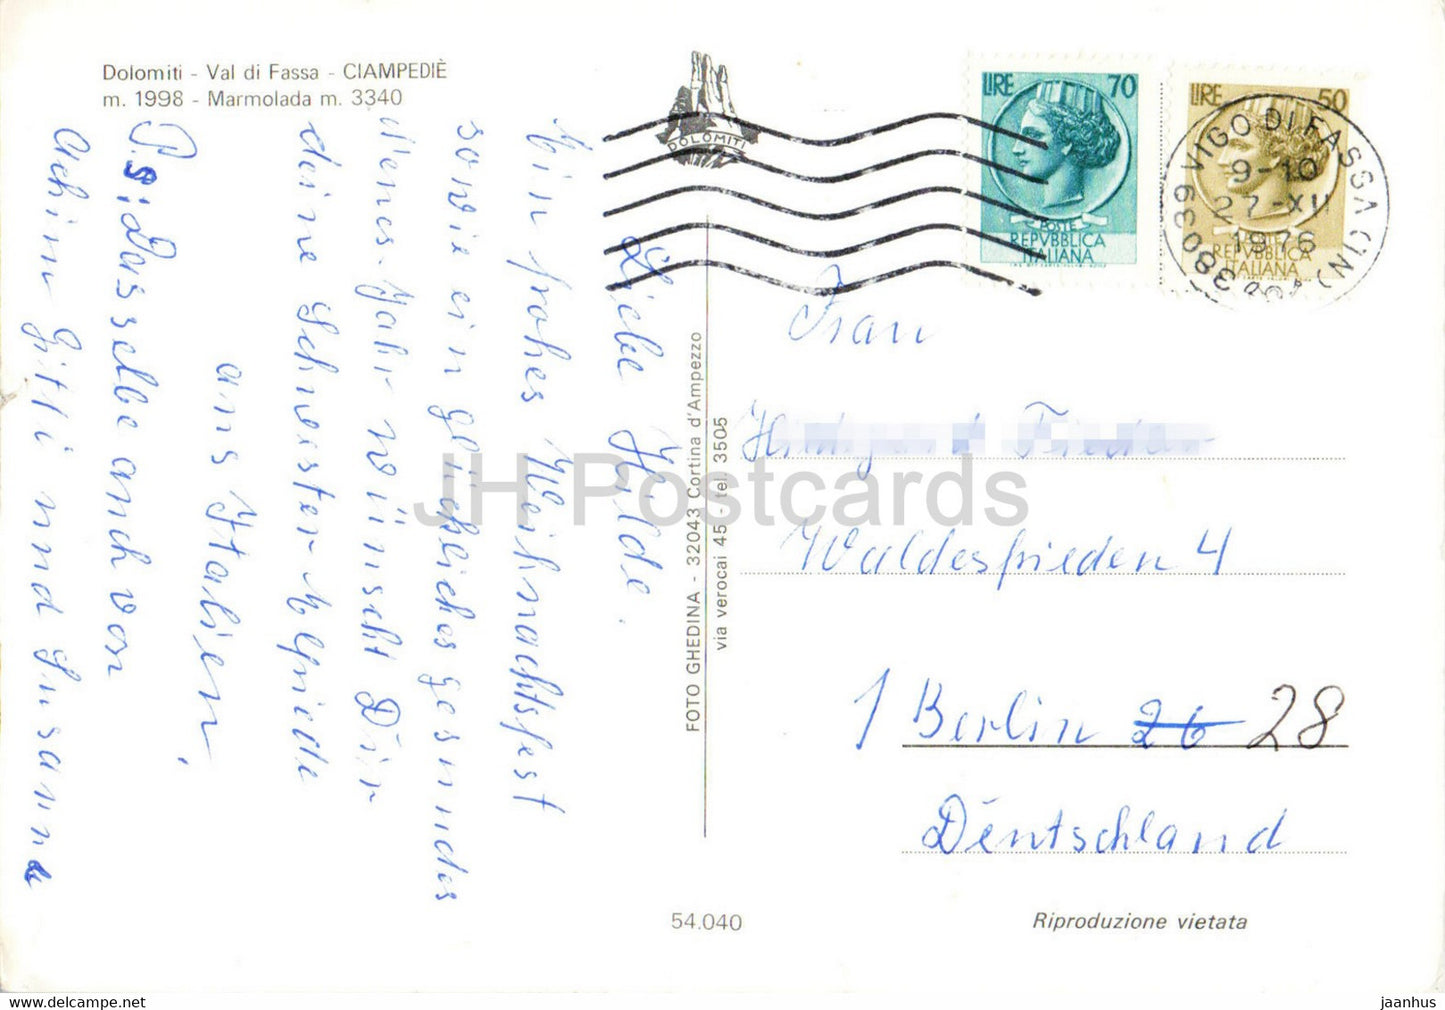 Dolomiti - Val di Fassa - CIAMPEDIÈ
m. 1998 - Marmolada m. 3340
DOLOMITI
LIRE 70
POSTE
REPVBBLICA
ITALIANA
LIRE 50
POSTE
REPVBBLICA
ITALIANA
38039 VIGO DI FASSA (TN)
9-10
27-XII
1976
Liebe Hilde.
Ein frohes Weihnachtsfest
sowie ein glückliches gesundes
neues Jahr wünscht Dir
deine Schwester Elfriede
aus Italien.
P.s: Dasselbe auch von
Achim Gitti und Susanne
FOTO GHEDINA - 32043 Cortina d'Ampezzo
via verocai 45 - tel. 3505
Frau
Waldesfrieden 4
1 Berlin 26 28
Deutschland
54.040
Riproduzione vietata
JH Postcards
jaanhus
www.delcampe.net